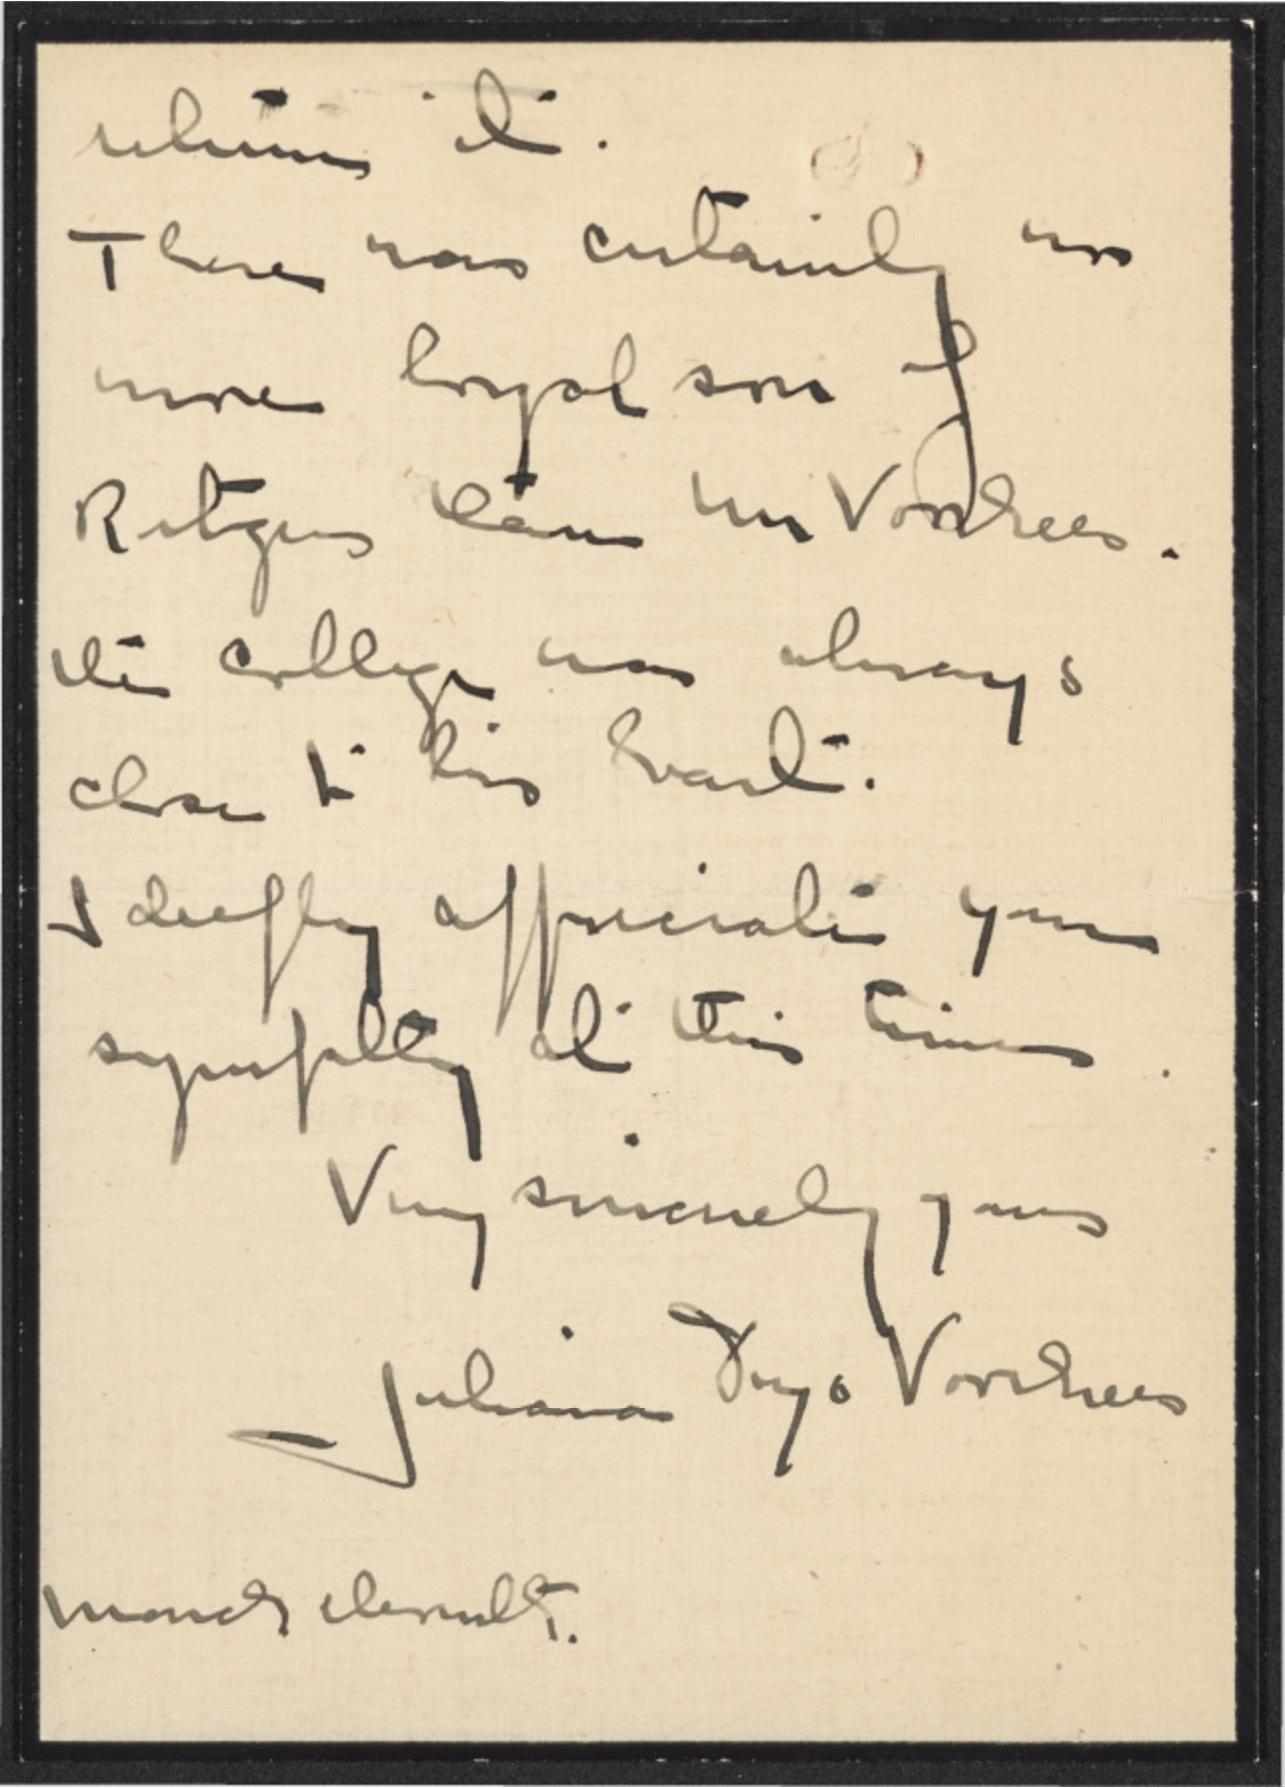 return it.
There was certainly no
more loyal son of
Rutgers than Mr Voorhees.
the college was always
close to his heart.
I deeply appreciate your
sympathy at this time.
Very sincerely yours
Juliana Deyo Voorhees
March eleventh.